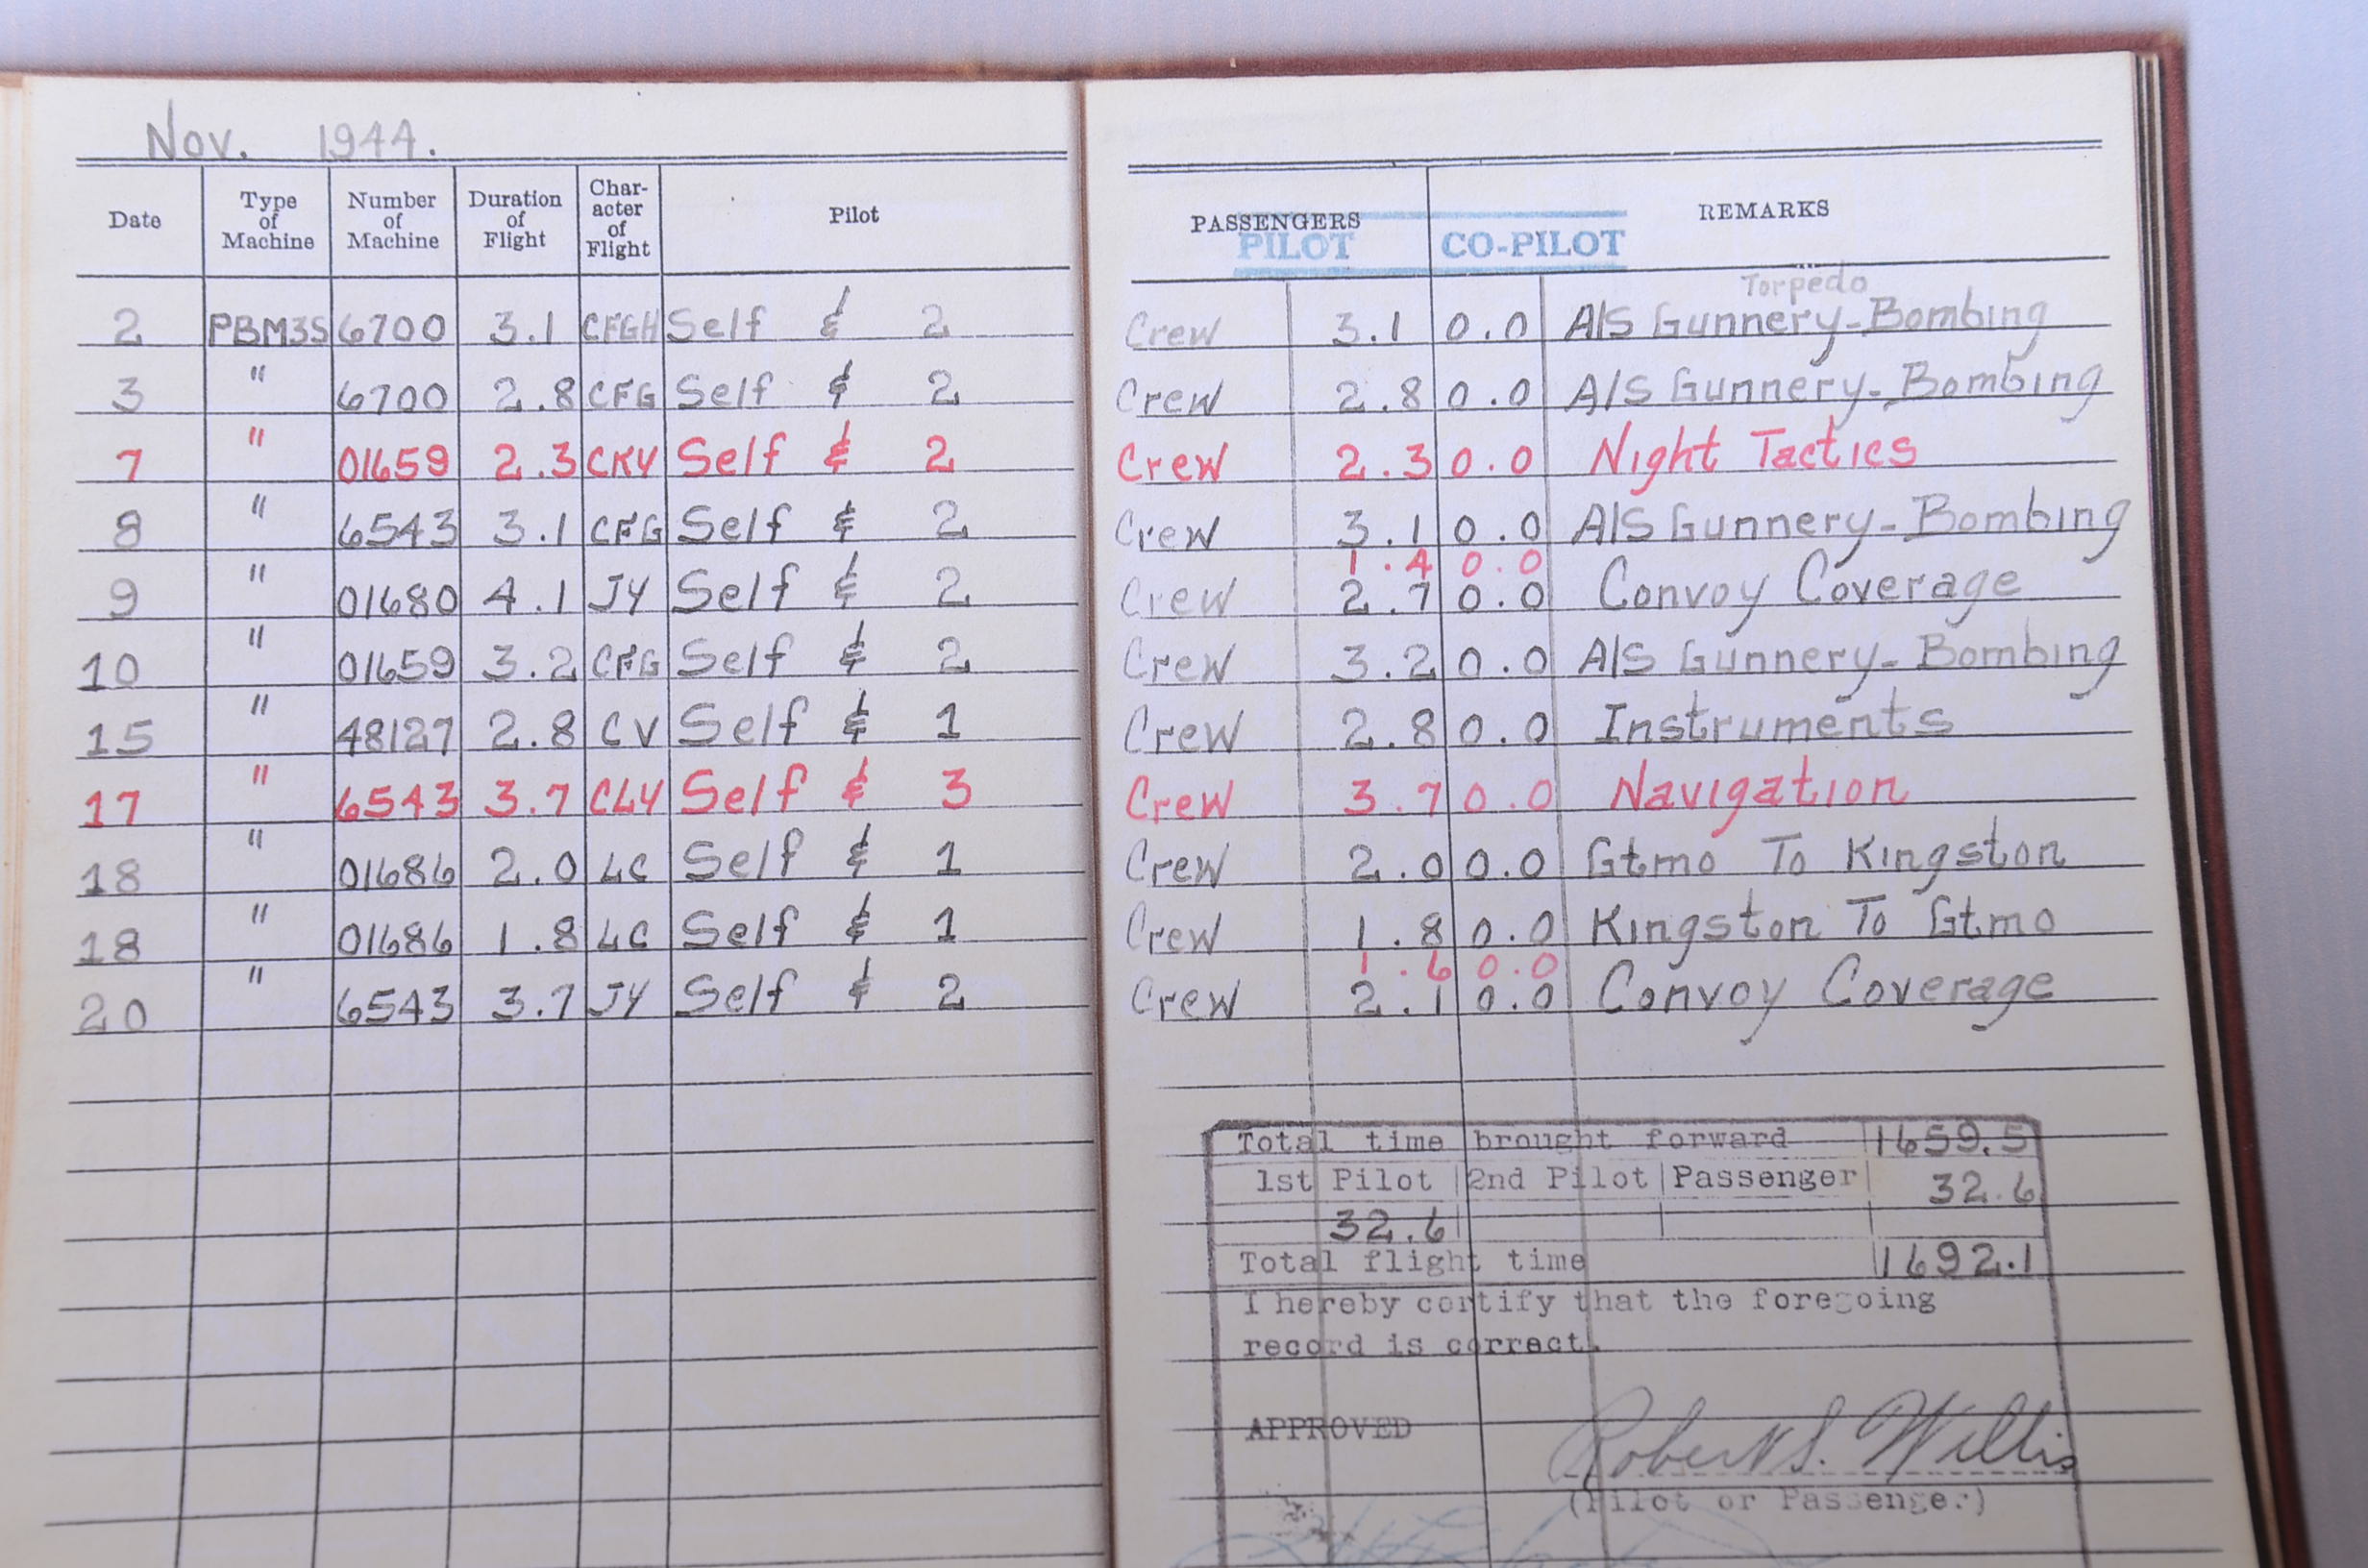 Nov. 1944.
Date Type of Machine Number of Machine Duration of Flight Char-acter of Flight Pilot PASSENGERS REMARKS
PILOT CO-PILOT
Torpedo
2 PBM3S 6700 3.1 CFGH Self & 2 Crew 3.1 0.0 A/S Gunnery-Bombing
3 " 6700 2.8 CFG Self & 2 Crew 2.8 0.0 A/S Gunnery-Bombing
7 " 01659 2.3 CKY Self & 2 Crew 2.3 0.0 Night Tactics
8 " 6543 3.1 CFG Self & 2 Crew 3.1 0.0 A/S Gunnery-Bombing
1.4 0.0
9 " 01680 4.1 JY Self & 2 Crew 2.7 0.0 Convoy Coverage
10 " 01659 3.2 CFG Self & 2 Crew 3.2 0.0 A/S Gunnery-Bombing
15 " 48127 2.8 CV Self & 1 Crew 2.8 0.0 Instruments
17 " 6543 3.7 CLY Self & 3 Crew 3.7 0.0 Navigation
18 " 01686 2.0 LC Self & 1 Crew 2.0 0.0 Gtmo To Kingston
18 " 01686 1.8 LC Self & 1 Crew 1.8 0.0 Kingston To Gtmo
1.6 0.0
20 " 6543 3.7 JY Self & 2 Crew 2.1 0.0 Convoy Coverage
Total time brought forward 1659.5
1st Pilot 2nd Pilot Passenger 32.6
32.6
Total flight time 1692.1
I hereby certify that the foregoing
record is correct.
APPROVED
Robert S. Willis
(Pilot or Passenger)